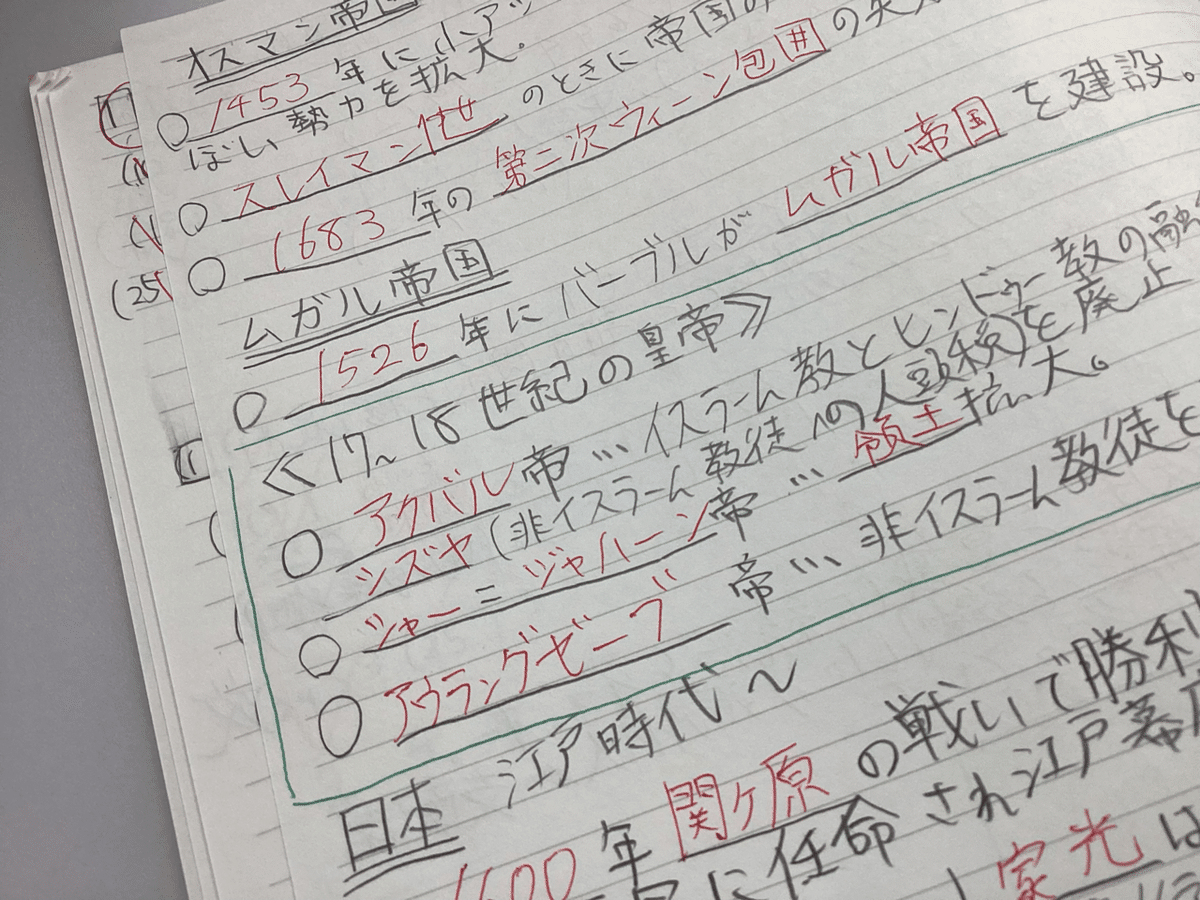 オスマン帝国
○ 1453 年に小アッ
ぼい勢力を拡大。
○ スレイマン1世 のときに帝国の
○ 1683 年の 第二次ウィーン包囲 の失
ムガル帝国
○ 1526 年にバーブルが ムガル帝国 を建設。
≪17~18世紀の皇帝≫
○ アクバル帝…イスラーム教とヒンドゥー教の融
ジズヤ(非イスラーム教徒への人頭税)を廃止
○ シャー=ジャハーン帝… 領土拡大。
○ アウラングゼーブ 帝… 非イスラーム教徒を
日本 江戸時代~
1600 年 関ヶ原 の戦いで勝利
に任命され江戸幕府
家光 は
(25